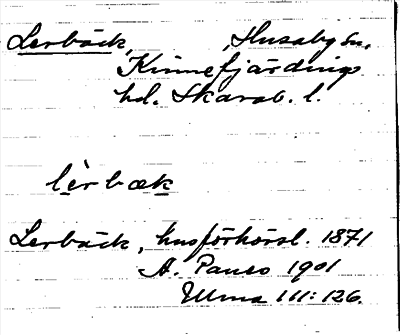 Lerbäck, Husaby sn,
Kinnefjärdings
hd. Skarab. l.
lèrbæk
Lerbäck, husförhörsl. 1871
A. Pauso 1901
Ulma 111:126.